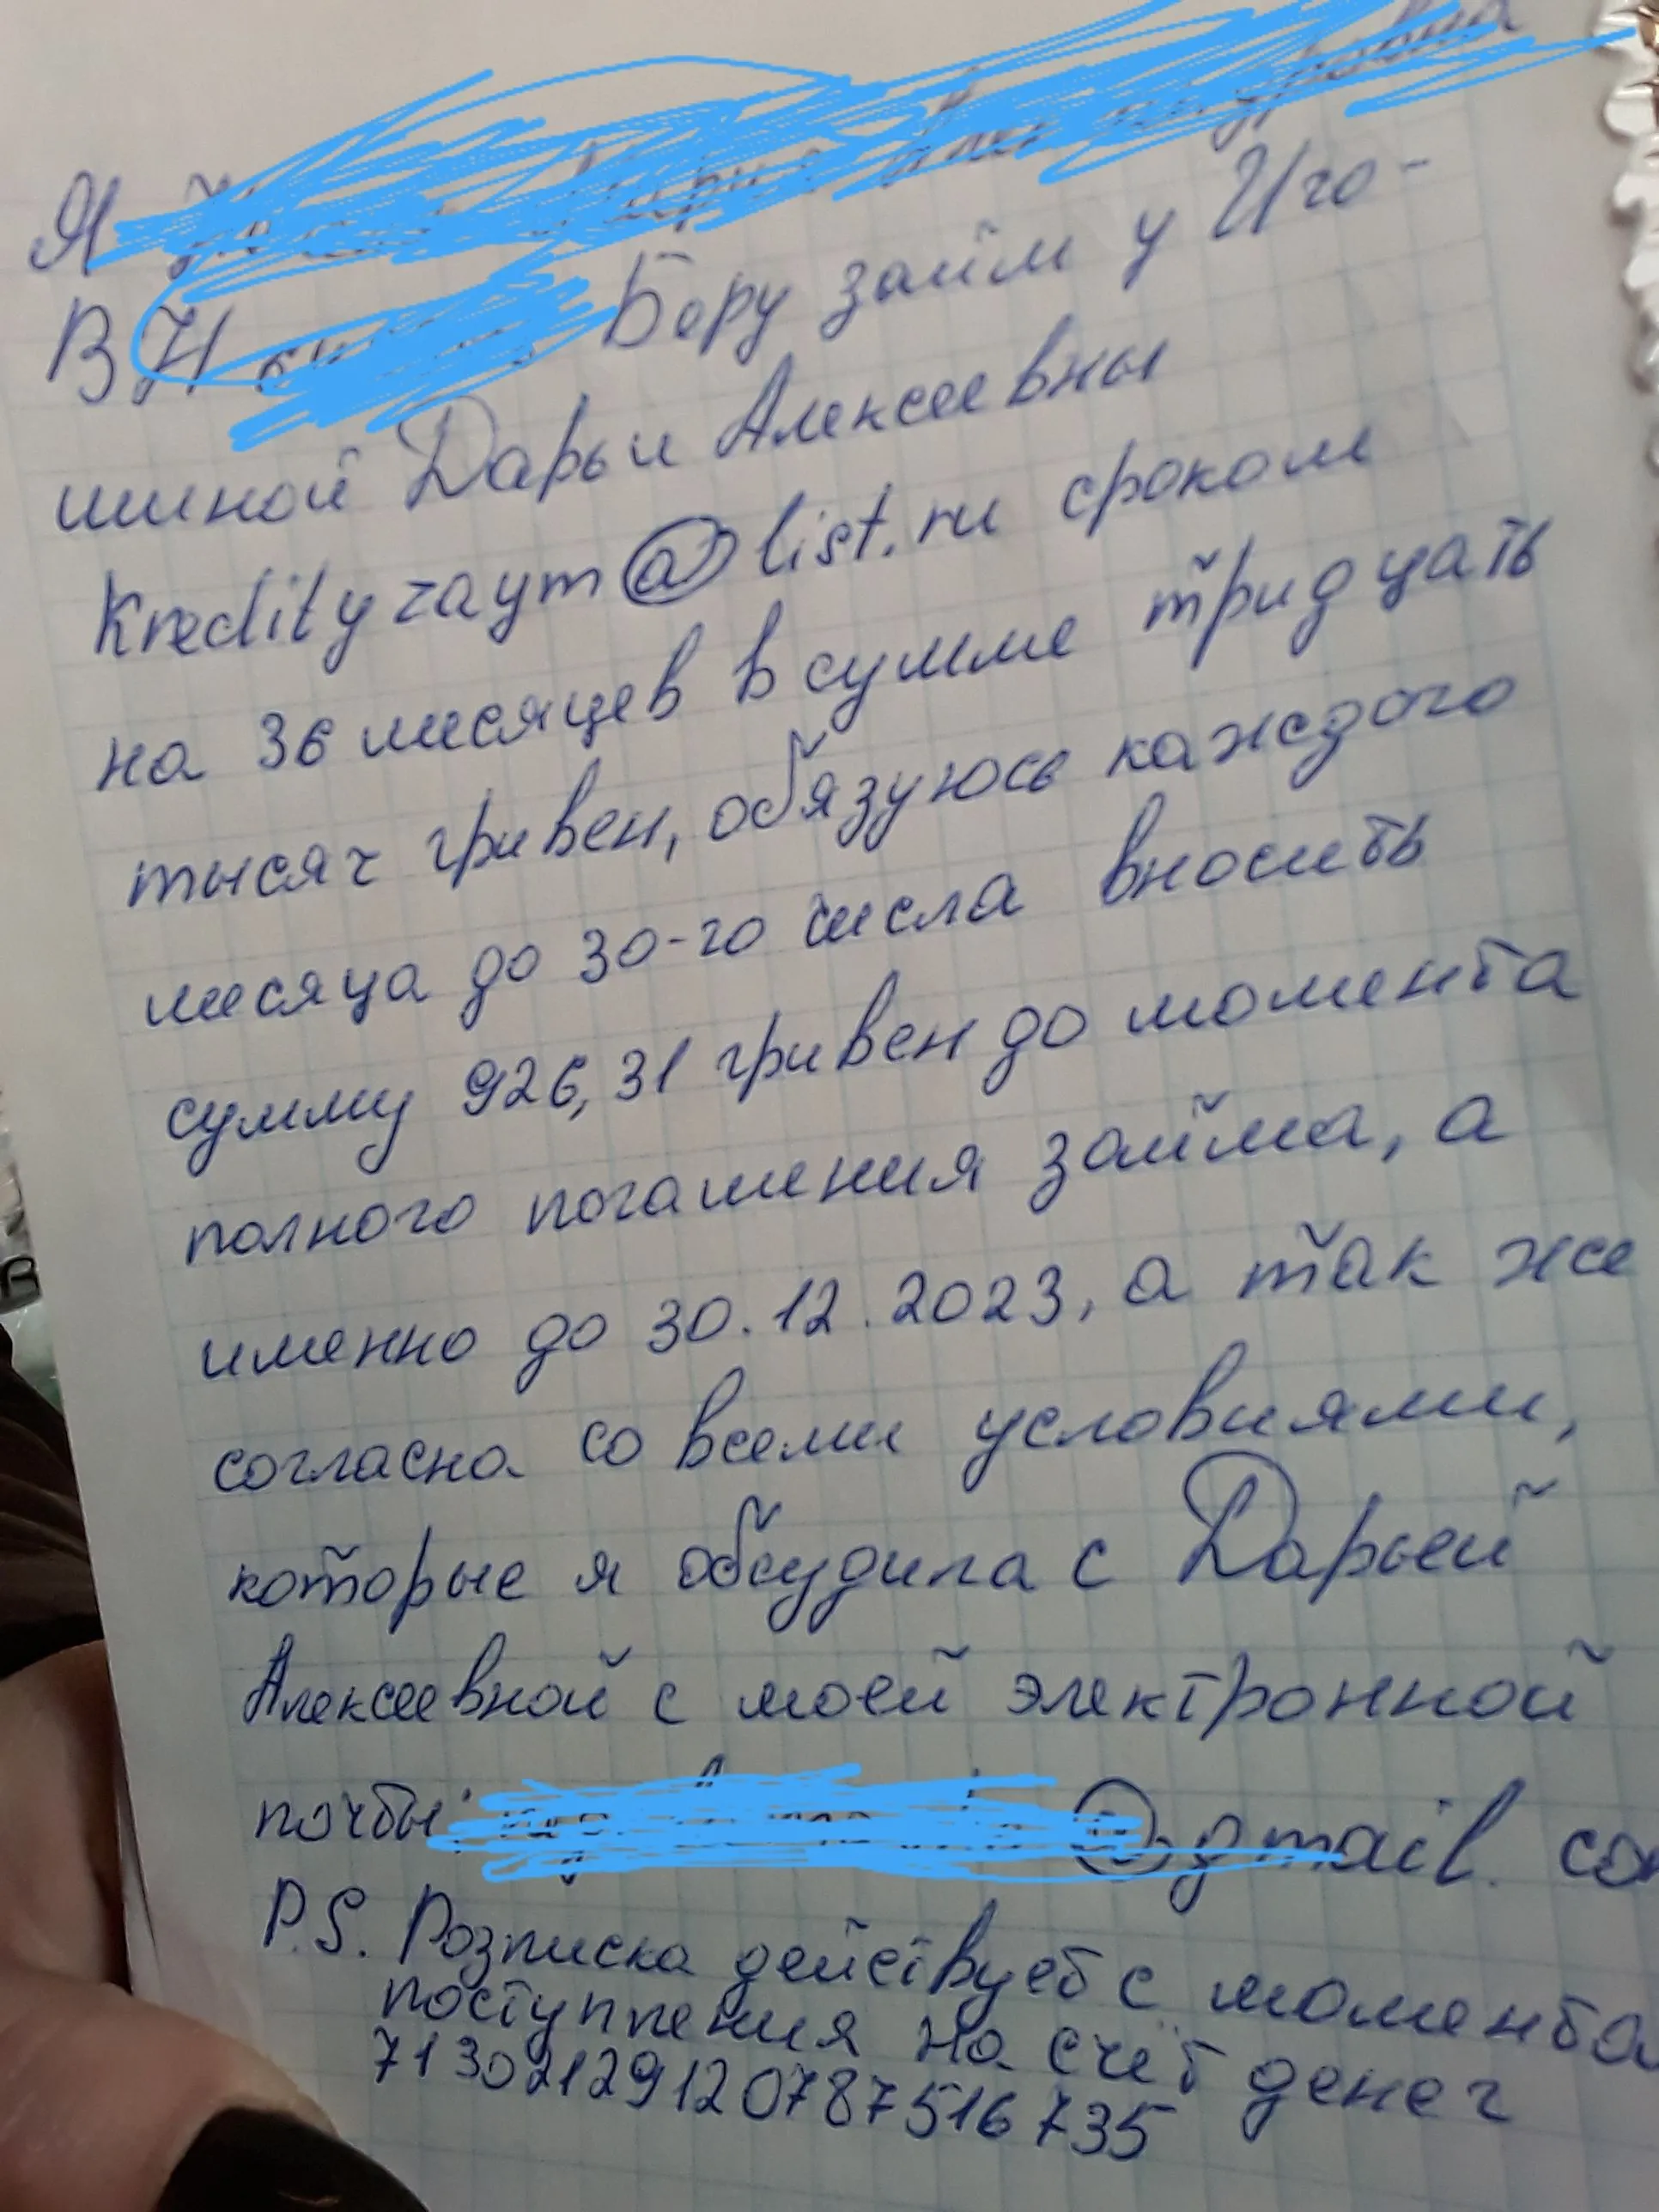 Я
В Беру займ у Иго-
шиной Дарьи Алексеевны
Kredityzaym@list.ru сроком
на 36 месяцев в сумме тридцать
тысяч гривен, обязуюсь каждого
месяца до 30-го числа вносить
сумму 926,31 гривен до момента
полного погашения займа, а
именно до 30.12.2023, а так же
согласна со всеми условиями,
которые я обсудила с Дарьей
Алексеевной с моей электронной
почты: @gmail.com
P.S. Розписка действует с момента
поступления на счёт денег
71302129120787516735